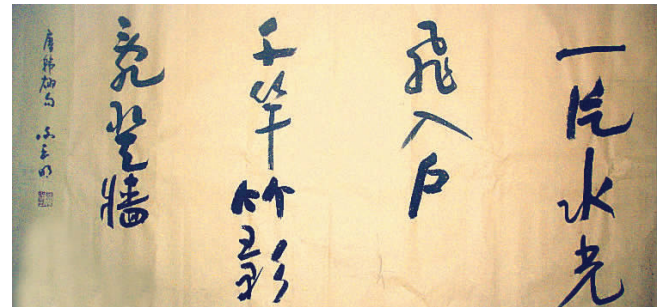 一片水光
飛入户
千竿竹影
亂登牆
唐韓翃句